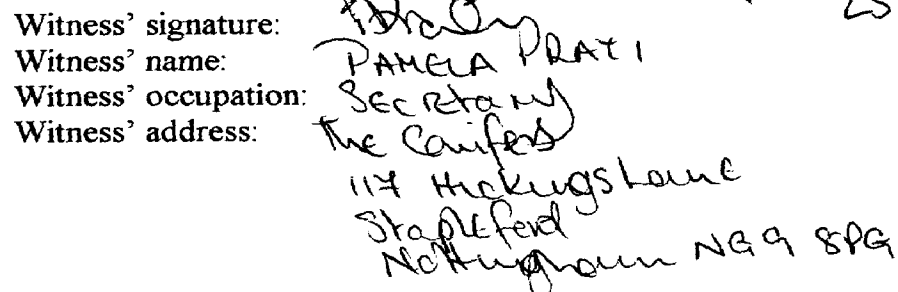 Witness' signature:
Witness' name: PAMELA PRATI
Witness' occupation: Secretary
Witness' address: The Conifers
117 Hickings Lane
Stapleford
Nottingham NG9 8PG